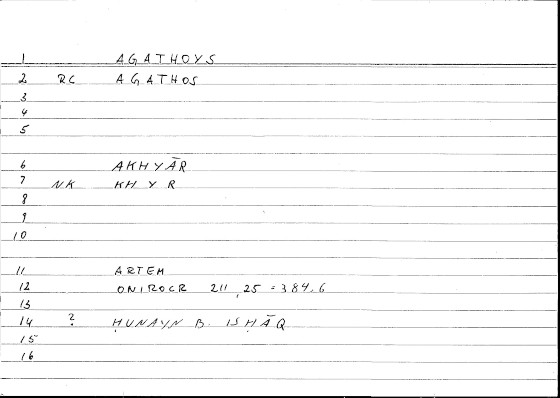 1 AGATHOYS
2 RC AGATHOS
3
4
5
6 AKHYĀR
7 NK KH Y R
8
9
10
11 ARTEM
12 ONIROCR 211,25 = 384,6
13
14 ? ḤUNAYN B. ISḤĀQ
15
16